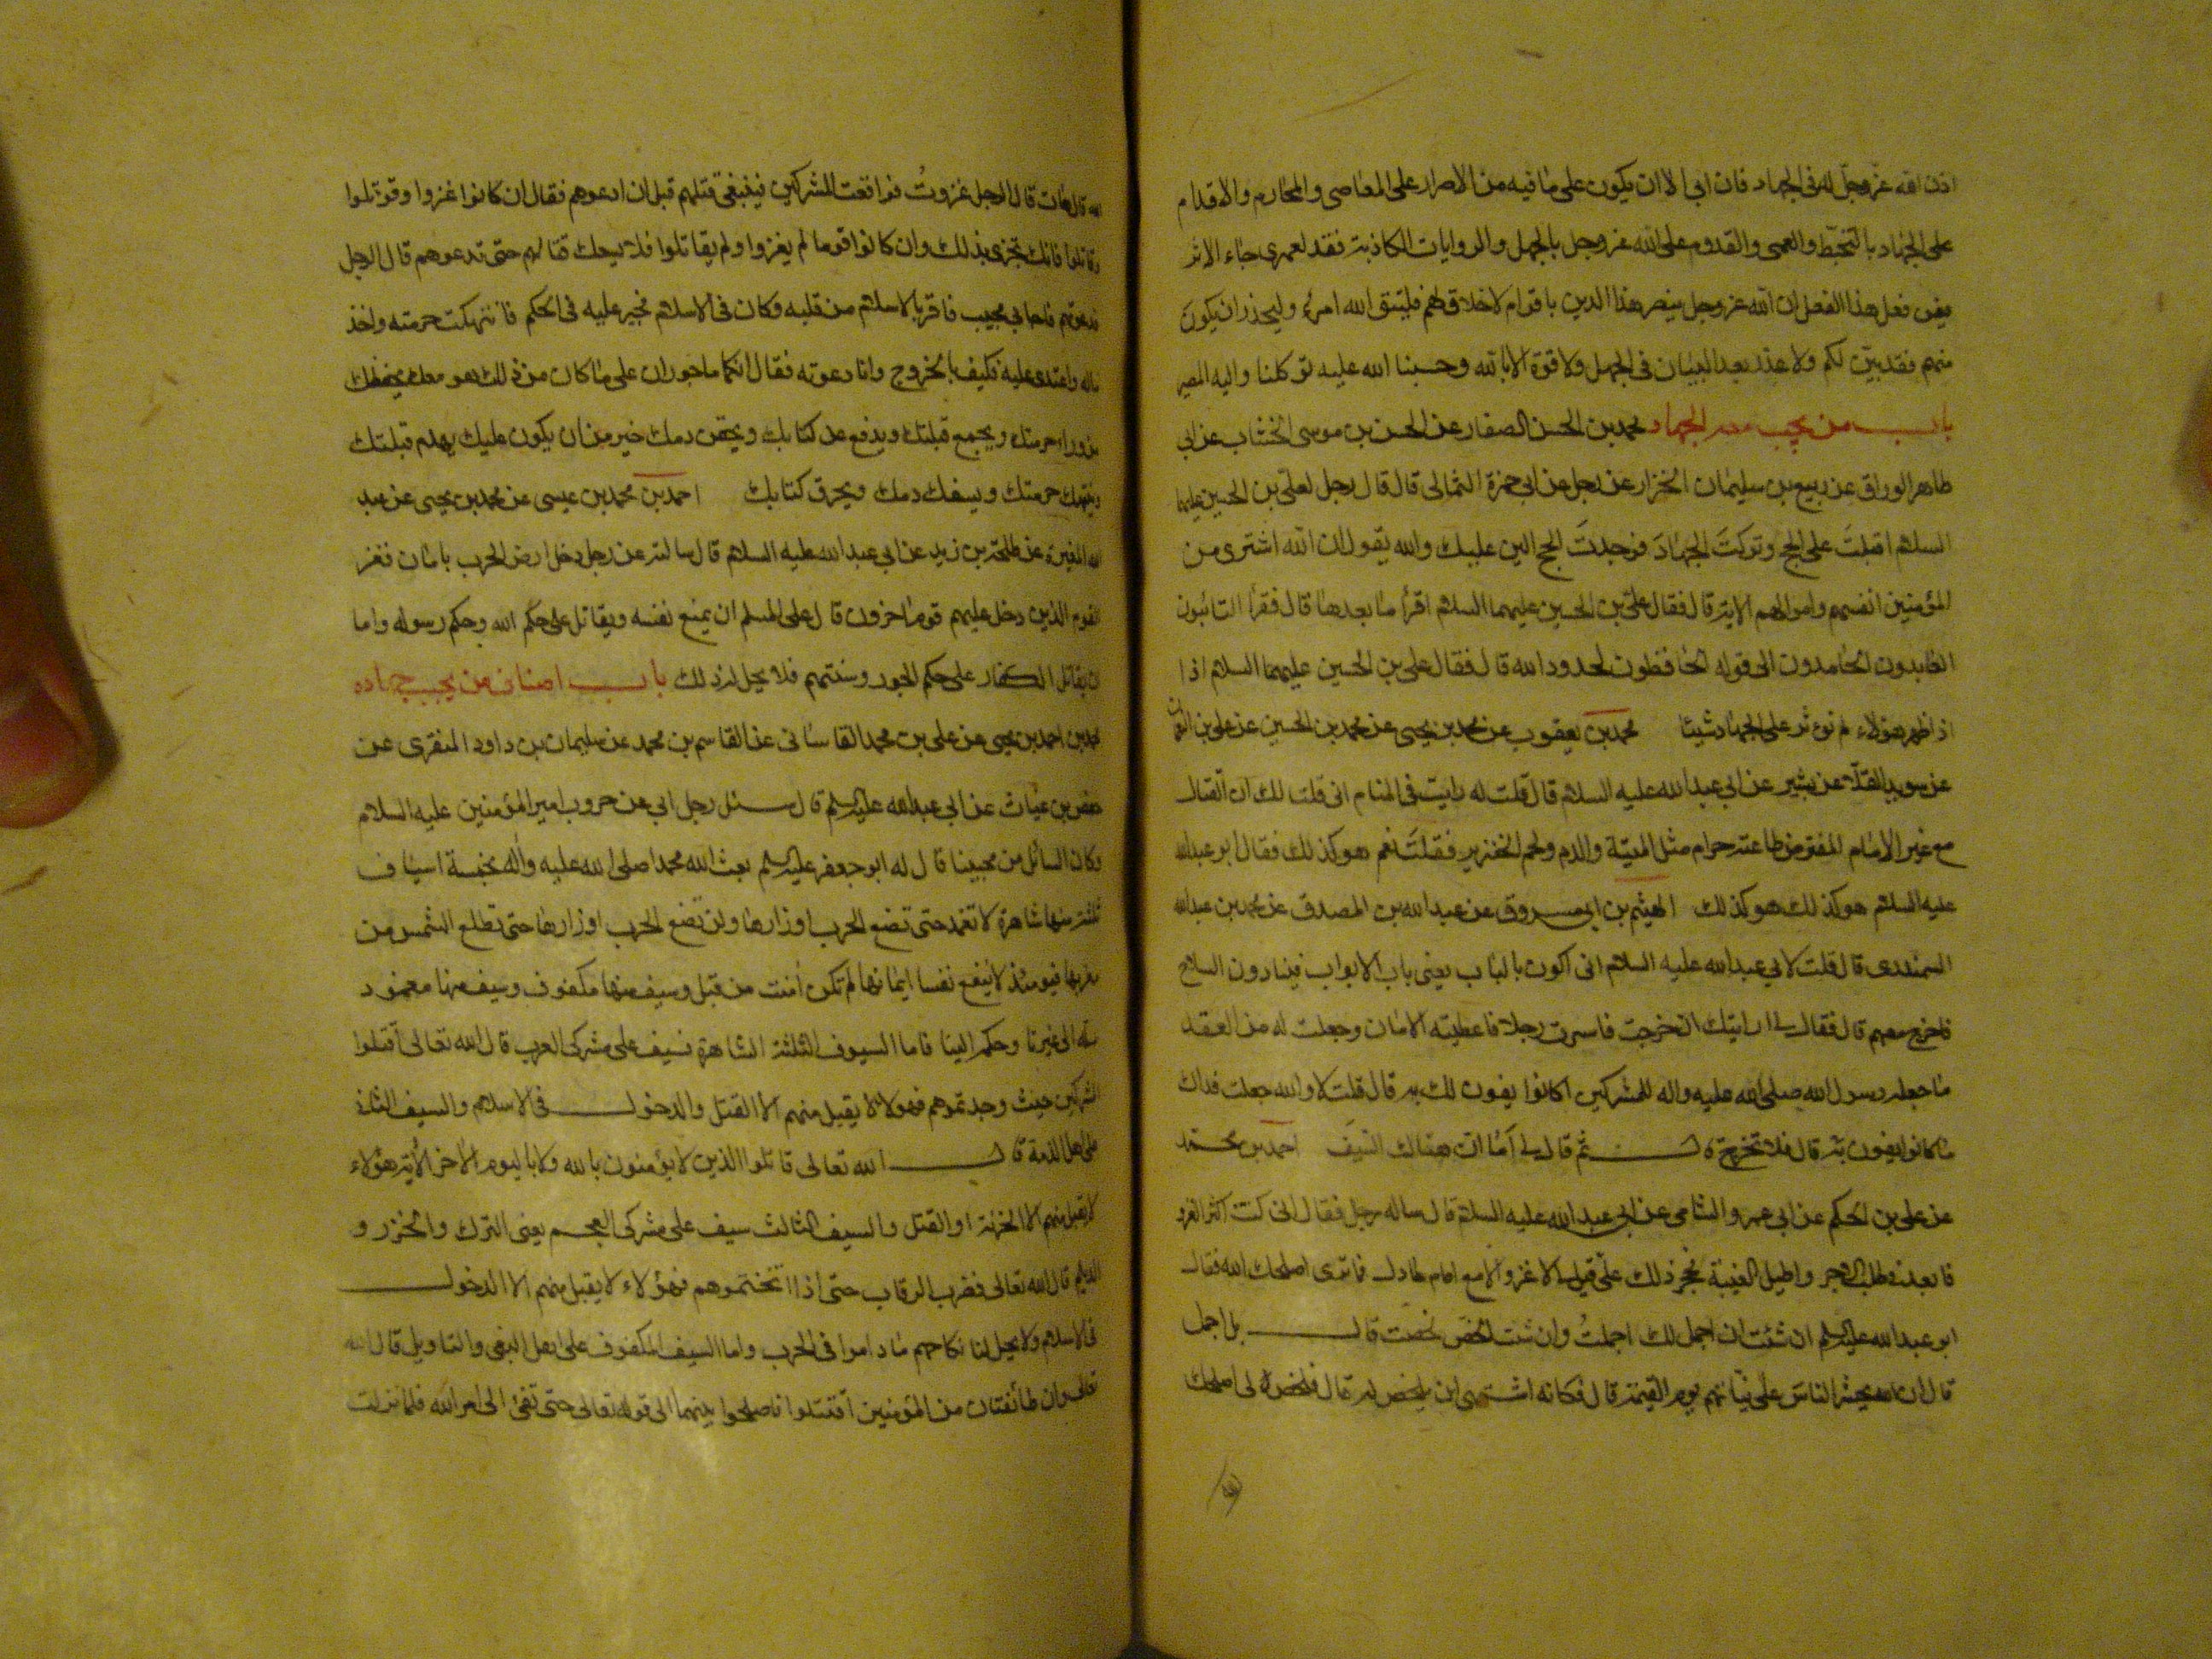 اذن الله عز وجل له فى الجهاد فان ابى الا ان يكون على ما فيه من الاصرار على المعاصى والمحارم والاقدام
على الجهاد بالتخبط والعمى والقدوم على الله عز وجل بالجهل والروايات الكاذبة فقد لعمرى جاء الاثر
فيمن فعل هذا الفعل ان الله عز وجل ينصر هذا الدين باقوام لا خلاق لهم فليتق الله امرء وليحذر ان يكون
منهم فقد بين لكم ولا عذر بعد البيان فى الجهل ولا قوة الا بالله وحسبنا الله عليه توكلنا واليه المصير
باب من يجب معه الجهاد محمد بن الحسن الصفار عن الحسن بن موسى الخشاب عن ابى
طاهر الوراق عن ربيع بن سليمان الخزاز عن رجل عن ابى حمزة الثمالى قال قال رجل لعلى بن الحسين عليهما
السلام اقبلت على الحج وتركت الجهاد فوجدت الحج الين عليك والله يقول ان الله اشترى من
المؤمنين انفسهم واموالهم الاية قال فقال على بن الحسين عليهما السلام اقرأ ما بعدها قال فقرأ التائبون
العابدون الحامدون الى قوله الحافظون لحدود الله قال فقال على بن الحسين عليهما السلام اذا
اذا ظهر هؤلاء لم نؤثر على الجهاد شيئا محمد بن يعقوب عن محمد بن يحيى عن محمد بن الحسين عن على بن النعمان
عن سويد القلا عن بشير عن ابى عبد الله عليه السلام قال قلت له رايت فى المنام انى قلت لك ان القتال
مع غير الامام المفترض طاعته حرام مثل الميتة والدم ولحم الخنزير فقلت نعم هو كذلك فقال ابو عبدالله
عليه السلام هو كذلك هو كذلك الهيثم بن ابى مسروق عن عبد الله بن المصدق عن محمد بن عبدالله
السمندرى قال قلت لابى عبد الله عليه السلام انى اكون بالباب يعنى باب الابواب فينادون السلاح
فاخرج معهم قال فقال لى ارايتك ان خرجت فاسرت رجلا فاعطيته الامان وجعلت له من العقد
ما جعله رسول الله صلى الله عليه واله للمشركين اكانوا يفون لك به قال قلت لا والله جعلت فداك
ما كانوا يفون به قال فلا تخرج ثم قال لى اما ان هناك السيف احمد بن محمد
عن على بن الحكم عن ابى عمرو الشامى عن ابى عبد الله عليه السلام قال ساله رجل فقال انى كنت اكثر الغزو
فابعد فى طلب الاجر واطيل الغيبة فحجر ذلك على فقيل لا غزو الا مع امام عادل فما ترى اصلحك الله فقال
ابو عبد الله عليه السلم ان شئت ان اجمل لك اجملت وان شئت الخص لخصت قال بل اجمل
قال ان الله يحشر الناس على نياتهم يوم القيمة قال فكانه اشتهى ان يلخص له قال فلخص لى اصلحك
الله قال هات قال الرجل غزوت فواقعت المشركين فينبغى قتلهم قبل ان ادعوهم فقال ان كانوا غزوا وقوتلوا
وقاتلوا فانك تجزى بذلك وان كانوا قوما لم يغزوا ولم يقاتلوا فلا يسعك قتالهم حتى تدعوهم قال الرجل
فدعوتهم فاجابى مجيب فاقر بالاسلام من قلبه وكان فى الاسلام فجير عليه فى الحكم فانتهكت حرمته واخذ
ماله واعتدى عليه فكيف بالخروج وانا دعوته فقال انكما ماجوران على ما كان من ذلك وهو معك يحفظك
من وراء حرمتك ويجمع قبلتك ويدفع عن كتابك ويحقن دمك خير من ان يكون عليك يهدم قبلتك
وينتهك حرمتك ويسفك دمك ويحرق كتابك احمد بن محمد بن عيسى عن محمد بن يحيى عن عبد
الله المغيرة عن طلحة بن زيد عن ابى عبد الله عليه السلام قال سالته عن رجل دخل ارض الحرب بامان فغزا
القوم الذين دخل عليهم قوم اخرون قال على المسلم ان يمنع نفسه ويقاتل على حكم الله وحكم رسوله واما
ان يقاتل الكفار على حكم الجور وسنتهم فلا يحل له ذلك باب اصناف من يجب جهاده
محمد بن احمد بن يحيى عن على بن محمد القاسانى عن القاسم بن محمد عن سليمان بن داود المنقرى عن
حفص بن غياث عن ابى عبدالله عليه السلم قال سئل رجل ابى عن حروب امير المؤمنين عليه السلام
وكان السائل من محبينا قال له ابو جعفر عليه السلم بعث الله محمدا صلى الله عليه واله بخمسة اسياف
ثلثة منها شاهرة لا تغمد حتى تضع الحرب اوزارها ولن تضع الحرب اوزارها حتى تطلع الشمس من
مغربها فيومئذ لا ينفع نفسا ايمانها لم تكن امنت من قبل وسيف منها مكفوف وسيف منها مغمود
سله الى غيرنا وحكمه الينا فاما السيوف الثلثة الشاهرة فسيف على مشركى العرب قال الله تعالى اقتلوا
المشركين حيث وجدتموهم فهؤلاء لا يقبل منهم الا القتل والدخول فى الاسلام والسيف الثانى
على اهل الذمة قال الله تعالى قاتلوا الذين لا يؤمنون بالله ولا باليوم الاخر الاية هؤلاء
لا يقبل منهم الا الجزية او القتل والسيف الثالث سيف على مشركى العجم يعنى الترك والخزر و
الديلم قال الله تعالى فضرب الرقاب حتى اذا اثخنتموهم فهؤلاء لا يقبل منهم الا الدخول
فى الاسلام ولا يحل لنا نكاحهم ما داموا فى الحرب واما السيف المكفوف على اهل البغى والتاويل قال الله
تعالى وان طائفتان من المؤمنين اقتتلوا فاصلحوا بينهما الى قوله تعالى حتى تفئ الى امر الله فلما نزلت